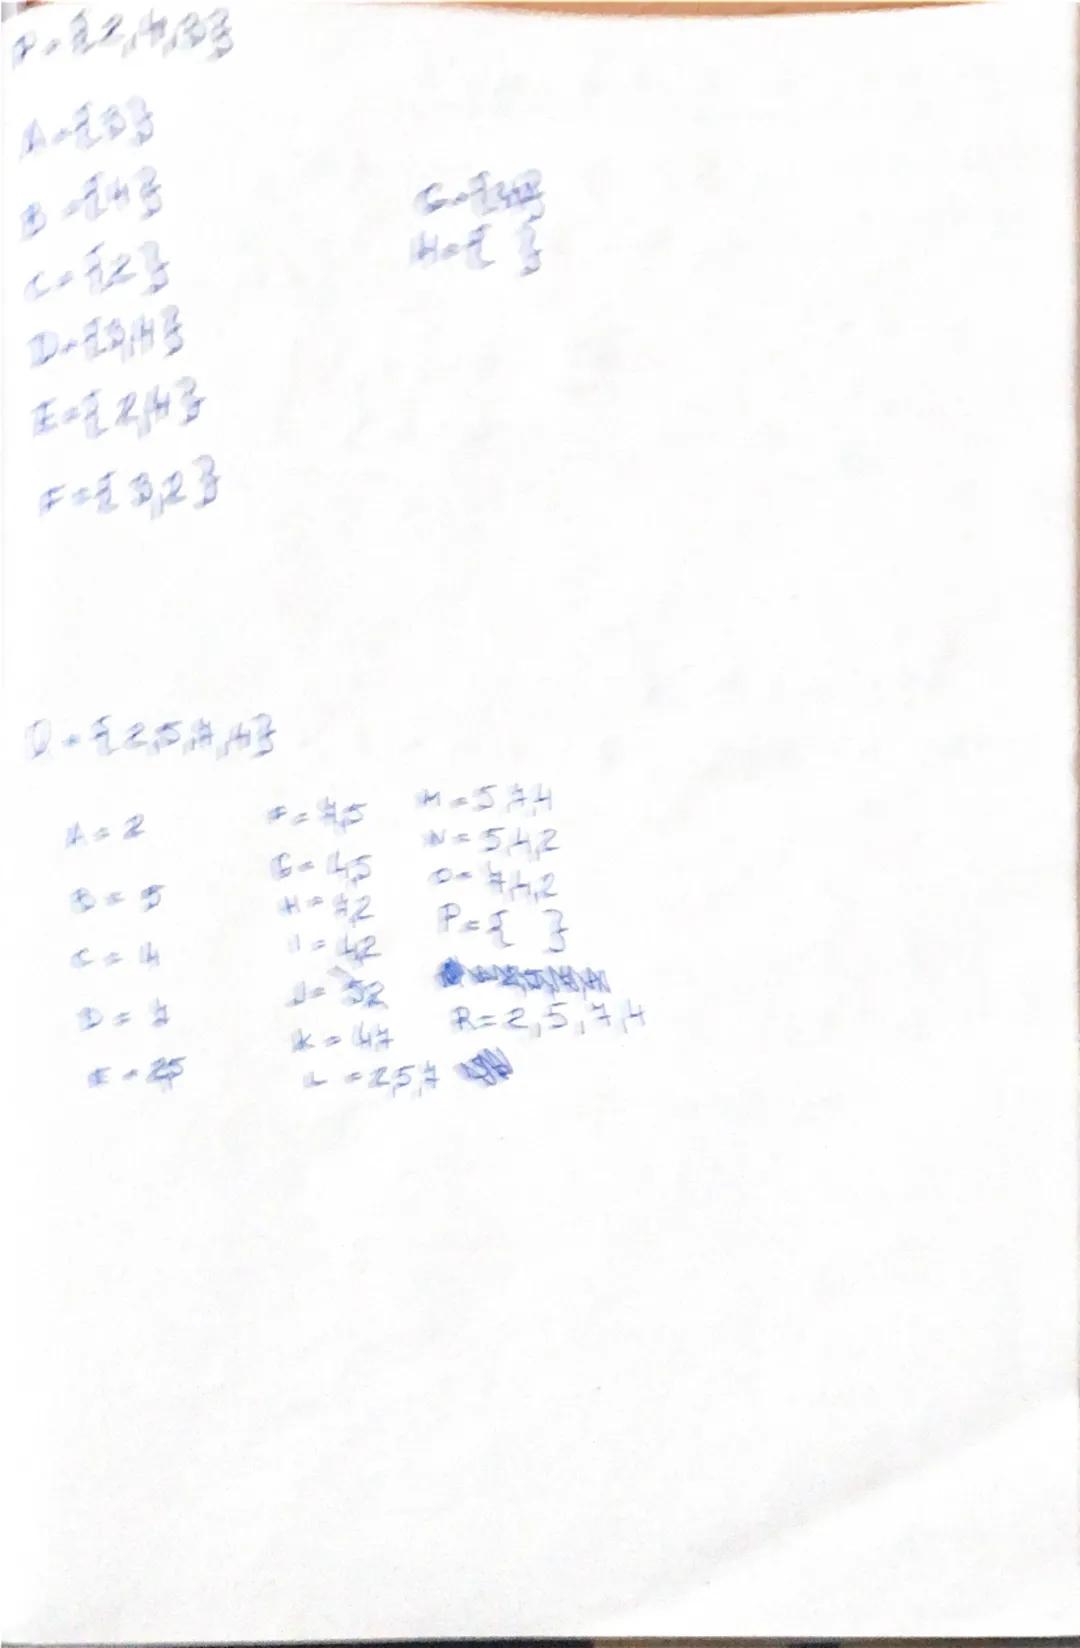 P={2,4,3}
A={3}
B={4}
C={2}
D={3,4}
E={2,4}
F={3,2}
H={ }
Q={2,5,7,4}
A=2
B=5
C=4
D=7
E=2,5
F=7,5
G=4,5
H=7,2
I=4,2
J=5,2
K=4,7
L=2,5,7
M=5,7,4
N=5,4,2
O=7,4,2
P={ }
R=2,5,7,4